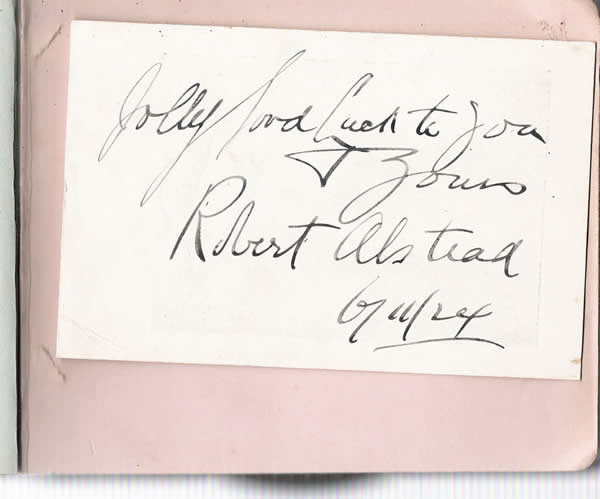 Jolly Good Luck to you
& Yours
Robert Alstead
6/11/24